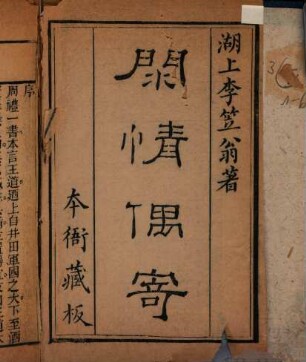 湖上李笠翁著
閒情偶寄
本衙藏板
序
周禮一書本言王道廼上自井田軍國之大下至酒